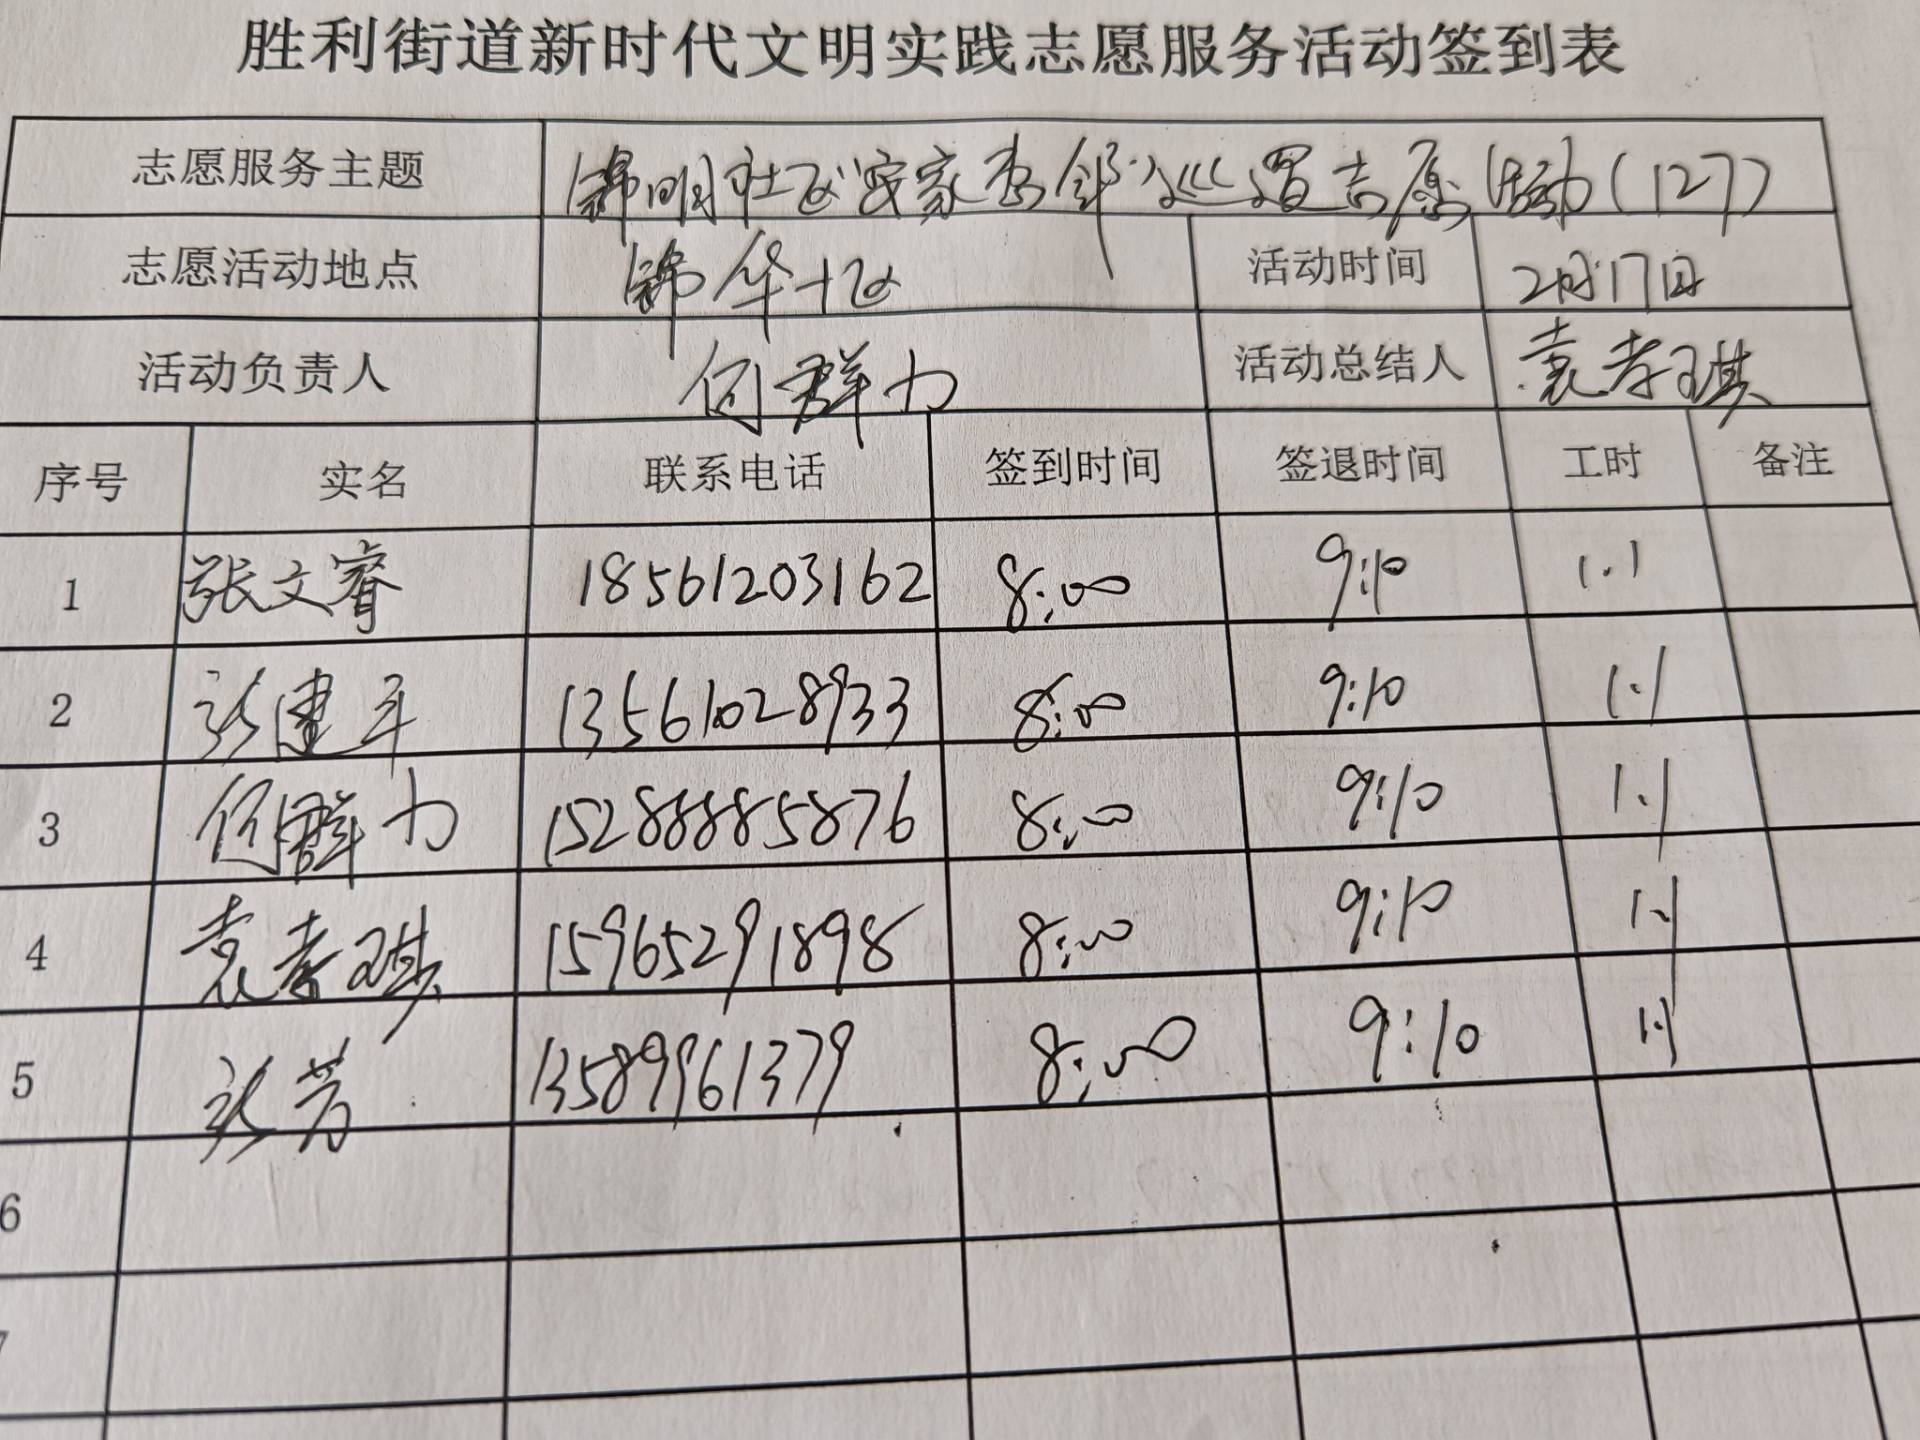 胜利街道新时代文明实践志愿服务活动签到表
志愿服务主题 锦明社区安家李邻巡逻志愿活动(127)
志愿活动地点 锦华十区 活动时间 2月17日
活动负责人 何群力 活动总结人 袁孝琪
序号 实名 联系电话 签到时间 签退时间 工时 备注
1 张文睿 18561203162 8:00 9:10 1.1
2 张建军 13561028933 8:00 9:10 1.1
3 何群力 15288885876 8:00 9:10 1.1
4 袁孝琪 15965291898 8:00 9:10 1.1
5 张芳 13589961379 8:00 9:10 1.1
6
7